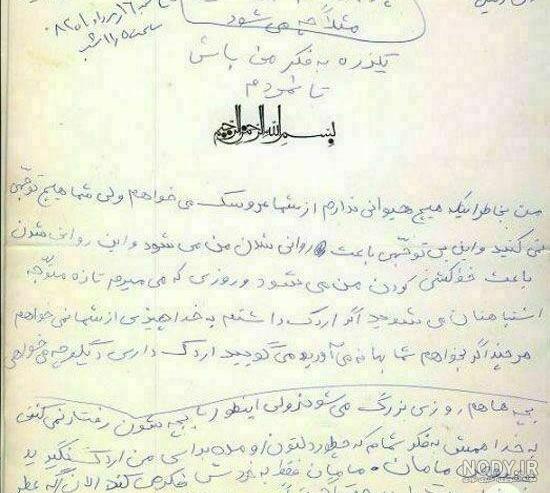 ۱۶ مرداد ۸۲۰۵
ساعت ۱۱/۵ شب
مثلاً چه می شود
یکذره به فکر من باش
تا نمردم
بسم الله الرحمن الرحیم
من بخاطر اینکه هیچ حیوانی ندارم از شما عروسک می خواهم ولی شما هیچ توجهی
نمی کنید و این بی توجهی باعث روانی شدن من می شود و این روانی شدن
باعث خودکشی کردن من می شود و روزی که می میرم تازه متوجه
اشتباهتان می شوید اگر اردک داشتم به خدا چیزی از شما نمی خواهم
هرچند اگر بخواهم شما بهانه می آورید می گویید اردک داری دیگر چه می خواهی
بچه ها هم روزی بزرگ می شوند ولی اینطور با بچه شون رفتار نمی کنند
به خدا همش به فکر شمام که چطور دلتون اومده برای من اردک نگیرید
مامان، مامان فقط به خودش فکر می کند الان اگه عطر
NODY.IR